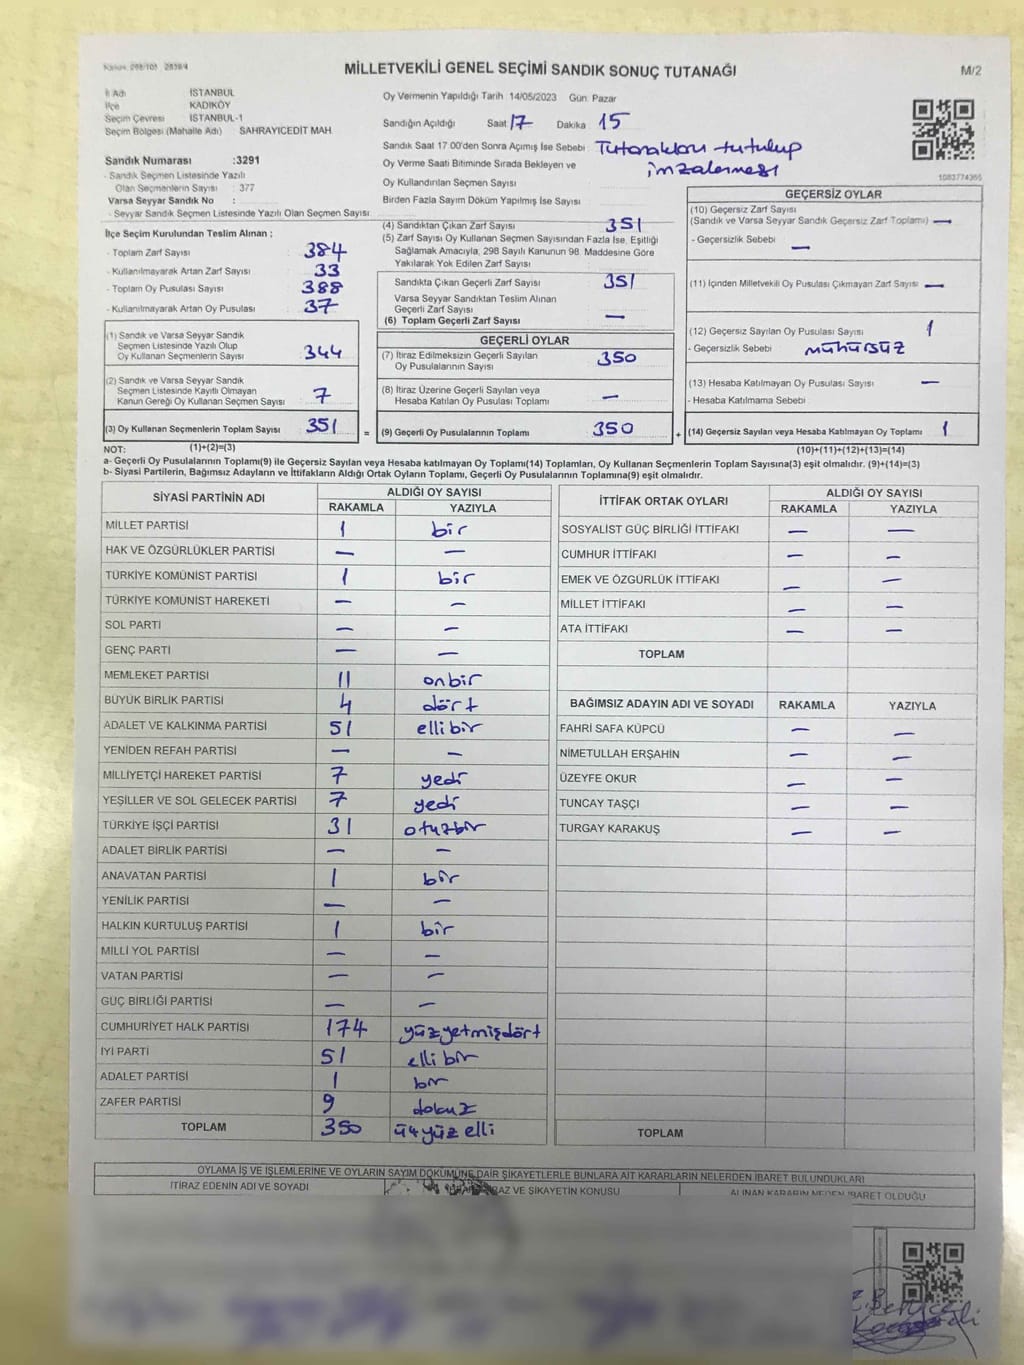 Kanun: 298/105 2839/4
MİLLETVEKİLİ GENEL SEÇİMİ SANDIK SONUÇ TUTANAĞI
M/2
İl Adı İSTANBUL
İlçe KADIKÖY
Seçim Çevresi İSTANBUL-1
Seçim Bölgesi (Mahalle Adı) SAHRAYICEDİT MAH
Sandık Numarası :3291
- Sandık Seçmen Listesinde Yazılı
Olan Seçmenlerin Sayısı : 377
Varsa Seyyar Sandık No :
- Seyyar Sandık Seçmen Listesinde Yazılı Olan Seçmen Sayısı
Oy Vermenin Yapıldığı Tarih 14/05/2023 Gün: Pazar
Sandığın Açıldığı Saat 17 Dakika 15
Sandık Saat 17.00'den Sonra Açımış İse Sebebi Tutanakların tutulup
imzalanması
Oy Verme Saati Bitiminde Sırada Bekleyen ve
Oy Kullandırılan Seçmen Sayısı
Birden Fazla Sayım Döküm Yapılmış İse Sayısı
1083774365
İlçe Seçim Kurulundan Teslim Alınan :
- Toplam Zarf Sayısı 384
- Kullanılmayarak Artan Zarf Sayısı 33
- Toplam Oy Pusulası Sayısı 388
- Kullanılmayarak Artan Oy Pusulası 37
(1) Sandık ve Varsa Seyyar Sandık
Seçmen Listesinde Yazılı Olup
Oy Kullanan Seçmenlerin Sayısı 344
(2) Sandık ve Varsa Seyyar Sandık
Seçmen Listesinde Kayıtlı Olmayan
Kanun Gereği Oy Kullanan Seçmen Sayısı 7
(3) Oy Kullanan Seçmenlerin Toplam Sayısı 351 =
(1)+(2)=(3)
(4) Sandıktan Çıkan Zarf Sayısı 351
(5) Zarf Sayısı Oy Kullanan Seçmen Sayısından Fazla İse, Eşitliği
Sağlamak Amacıyla, 298 Sayılı Kanunun 98. Maddesine Göre
Yakılarak Yok Edilen Zarf Sayısı
Sandıkta Çıkan Geçerli Zarf Sayısı 351
Varsa Seyyar Sandıktan Teslim Alınan
Geçerli Zarf Sayısı —
(6) Toplam Geçerli Zarf Sayısı
GEÇERLİ OYLAR
(7) İtiraz Edilmeksizin Geçerli Sayılan
Oy Pusulalarının Sayısı 350
(8) İtiraz Üzerine Geçerli Sayılan veya
Hesaba Katılan Oy Pusulası Toplamı —
(9) Geçerli Oy Pusulalarının Toplamı 350 +
GEÇERSİZ OYLAR
(10) Geçersiz Zarf Sayısı
(Sandık ve Varsa Seyyar Sandık Geçersiz Zarf Toplamı) —
- Geçersizlik Sebebi —
(11) İçinden Milletvekili Oy Pusulası Çıkmayan Zarf Sayısı —
(12) Geçersiz Sayılan Oy Pusulası Sayısı 1
- Geçersizlik Sebebi mühürsüz
(13) Hesaba Katılmayan Oy Pusulası Sayısı —
- Hesaba Katılmama Sebebi
(14) Geçersiz Sayılan veya Hesaba Katılmayan Oy Toplamı 1
(10)+(11)+(12)+(13)=(14)
NOT:
a- Geçerli Oy Pusulalarının Toplamı(9) ile Geçersiz Sayılan veya Hesaba katılmayan Oy Toplamı(14) Toplamları, Oy Kullanan Seçmenlerin Toplam Sayısına(3) eşit olmalıdır. (9)+(14)=(3)
b- Siyasi Partilerin, Bağımsız Adayların ve İttifakların Aldığı Ortak Oyların Toplamı, Geçerli Oy Pusulalarının Toplamına(9) eşit olmalıdır.
SİYASİ PARTİNİN ADI ALDIĞI OY SAYISI
RAKAMLA YAZIYLA
MİLLET PARTİSİ 1 bir
HAK VE ÖZGÜRLÜKLER PARTİSİ — —
TÜRKİYE KOMÜNİST PARTİSİ 1 bir
TÜRKİYE KOMÜNİST HAREKETİ — —
SOL PARTİ — —
GENÇ PARTİ — —
MEMLEKET PARTİSİ 11 onbir
BÜYÜK BİRLİK PARTİSİ 4 dört
ADALET VE KALKINMA PARTİSİ 51 ellibir
YENİDEN REFAH PARTİSİ — —
MİLLİYETÇİ HAREKET PARTİSİ 7 yedi
YEŞİLLER VE SOL GELECEK PARTİSİ 7 yedi
TÜRKİYE İŞÇİ PARTİSİ 31 otuzbir
ADALET BİRLİK PARTİSİ — —
ANAVATAN PARTİSİ 1 bir
YENİLİK PARTİSİ — —
HALKIN KURTULUŞ PARTİSİ 1 bir
MİLLİ YOL PARTİSİ — —
VATAN PARTİSİ — —
GÜÇ BİRLİĞİ PARTİSİ — —
CUMHURİYET HALK PARTİSİ 174 yüzyetmişdört
İYİ PARTİ 51 elli bir
ADALET PARTİSİ 1 bir
ZAFER PARTİSİ 9 dokuz
TOPLAM 350 üçyüz elli
İTTİFAK ORTAK OYLARI ALDIĞI OY SAYISI
RAKAMLA YAZIYLA
SOSYALİST GÜÇ BİRLİĞİ İTTİFAKI — —
CUMHUR İTTİFAKI — —
EMEK VE ÖZGÜRLÜK İTTİFAKI — —
MİLLET İTTİFAKI — —
ATA İTTİFAKI — —
TOPLAM
BAĞIMSIZ ADAYIN ADI VE SOYADI RAKAMLA YAZIYLA
FAHRİ SAFA KÜPCÜ — —
NİMETULLAH ERŞAHİN — —
ÜZEYFE OKUR — —
TUNCAY TAŞÇI — —
TURGAY KARAKUŞ — —
TOPLAM
OYLAMA İŞ VE İŞLEMLERİNE VE OYLARIN SAYIM DÖKÜMÜNE DAİR ŞİKAYETLERLE BUNLARA AİT KARARLARIN NELERDEN İBARET BULUNDUKLARI
İTİRAZ EDENİN ADI VE SOYADI
VE ŞİKAYETİN KONUSU
ALINAN KARARIN NEDEN İBARET OLDUĞU